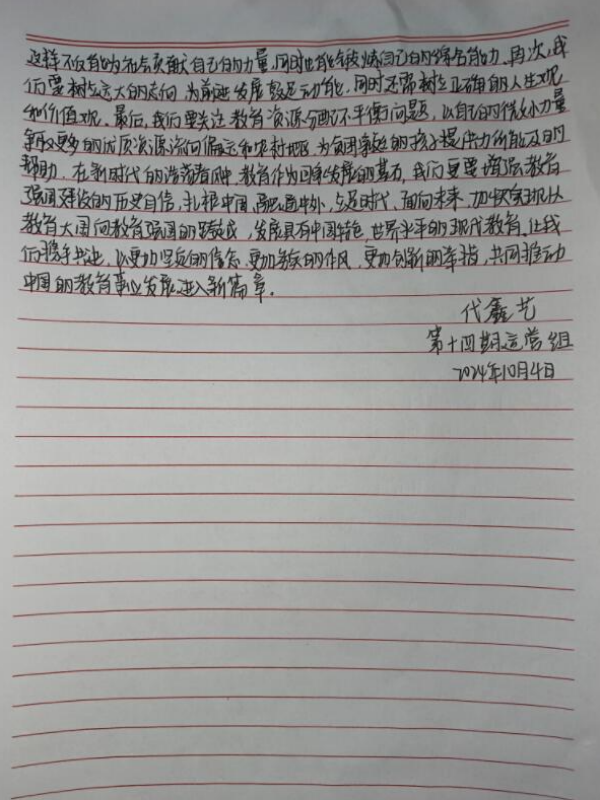 这样不仅能为社会贡献自己的力量,同时也能够锻炼自己的综合能力。再次,我
们要树立远大的志向,为前进发展蓄足动能,同时还需树立正确的人生观
和价值观。最后,我们要关注教育资源分配不平衡问题,以自己的微小力量
争取更多的优质资源流向偏远和农村地区,为贫困家庭的孩子提供力所能及的
帮助。在新时代的浩荡春风中,教育作为国家发展的基石,我们更要增强教育
强国建设的历史自信,扎根中国,融通中外,立足时代,面向未来,加快实现从
教育大国向教育强国的跨越,发展具有中国特色,世界水平的现代教育。让我
们携手共进,以更加坚定的信念,更加务实的作风,更加创新的举措,共同推动
中国的教育事业发展进入新篇章。
代鑫艺
第十四期运营组
2024年10月4日